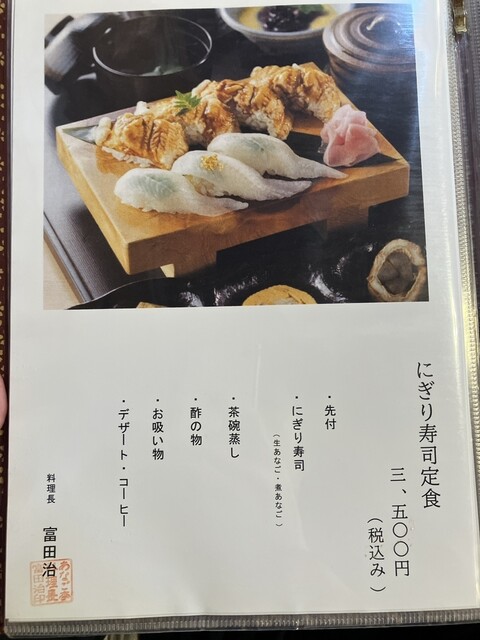 にぎり寿司定食
三、五〇〇円
(税込み)
・先付
・にぎり寿司
(生あなご・煮あなご)
・茶碗蒸し
・酢の物
・お吸い物
・デザート・コーヒー
料理長 富田治